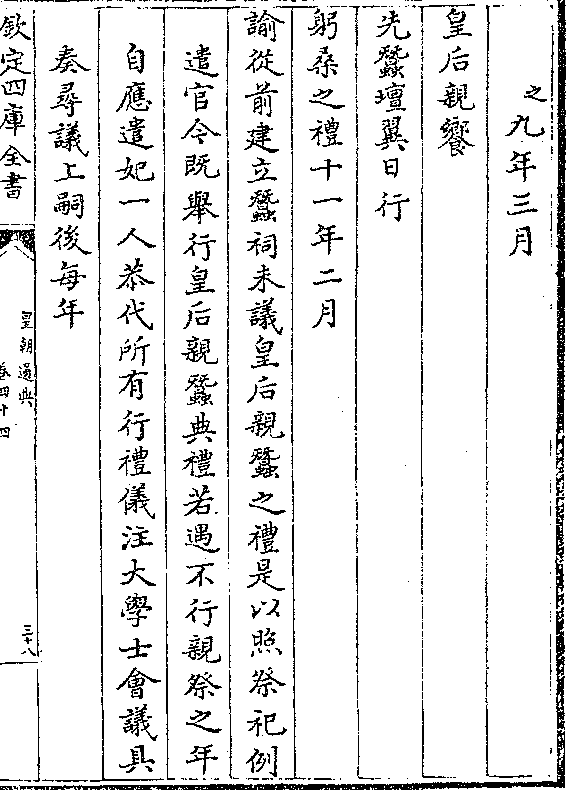 之九年三月
皇后親饗
先蠶壇翼日行
躬桑之禮十一年二月
諭從前建立蠶祠未議皇后親蠶之禮是以照祭祀例
遣官今既舉行皇后親蠶典禮若遇不行親祭之年
自應遣妃一人恭代所有行禮儀注大學士會議具
奏尋議上嗣後每年
欽定四庫全書
皇朝通典
卷四十四
三十八